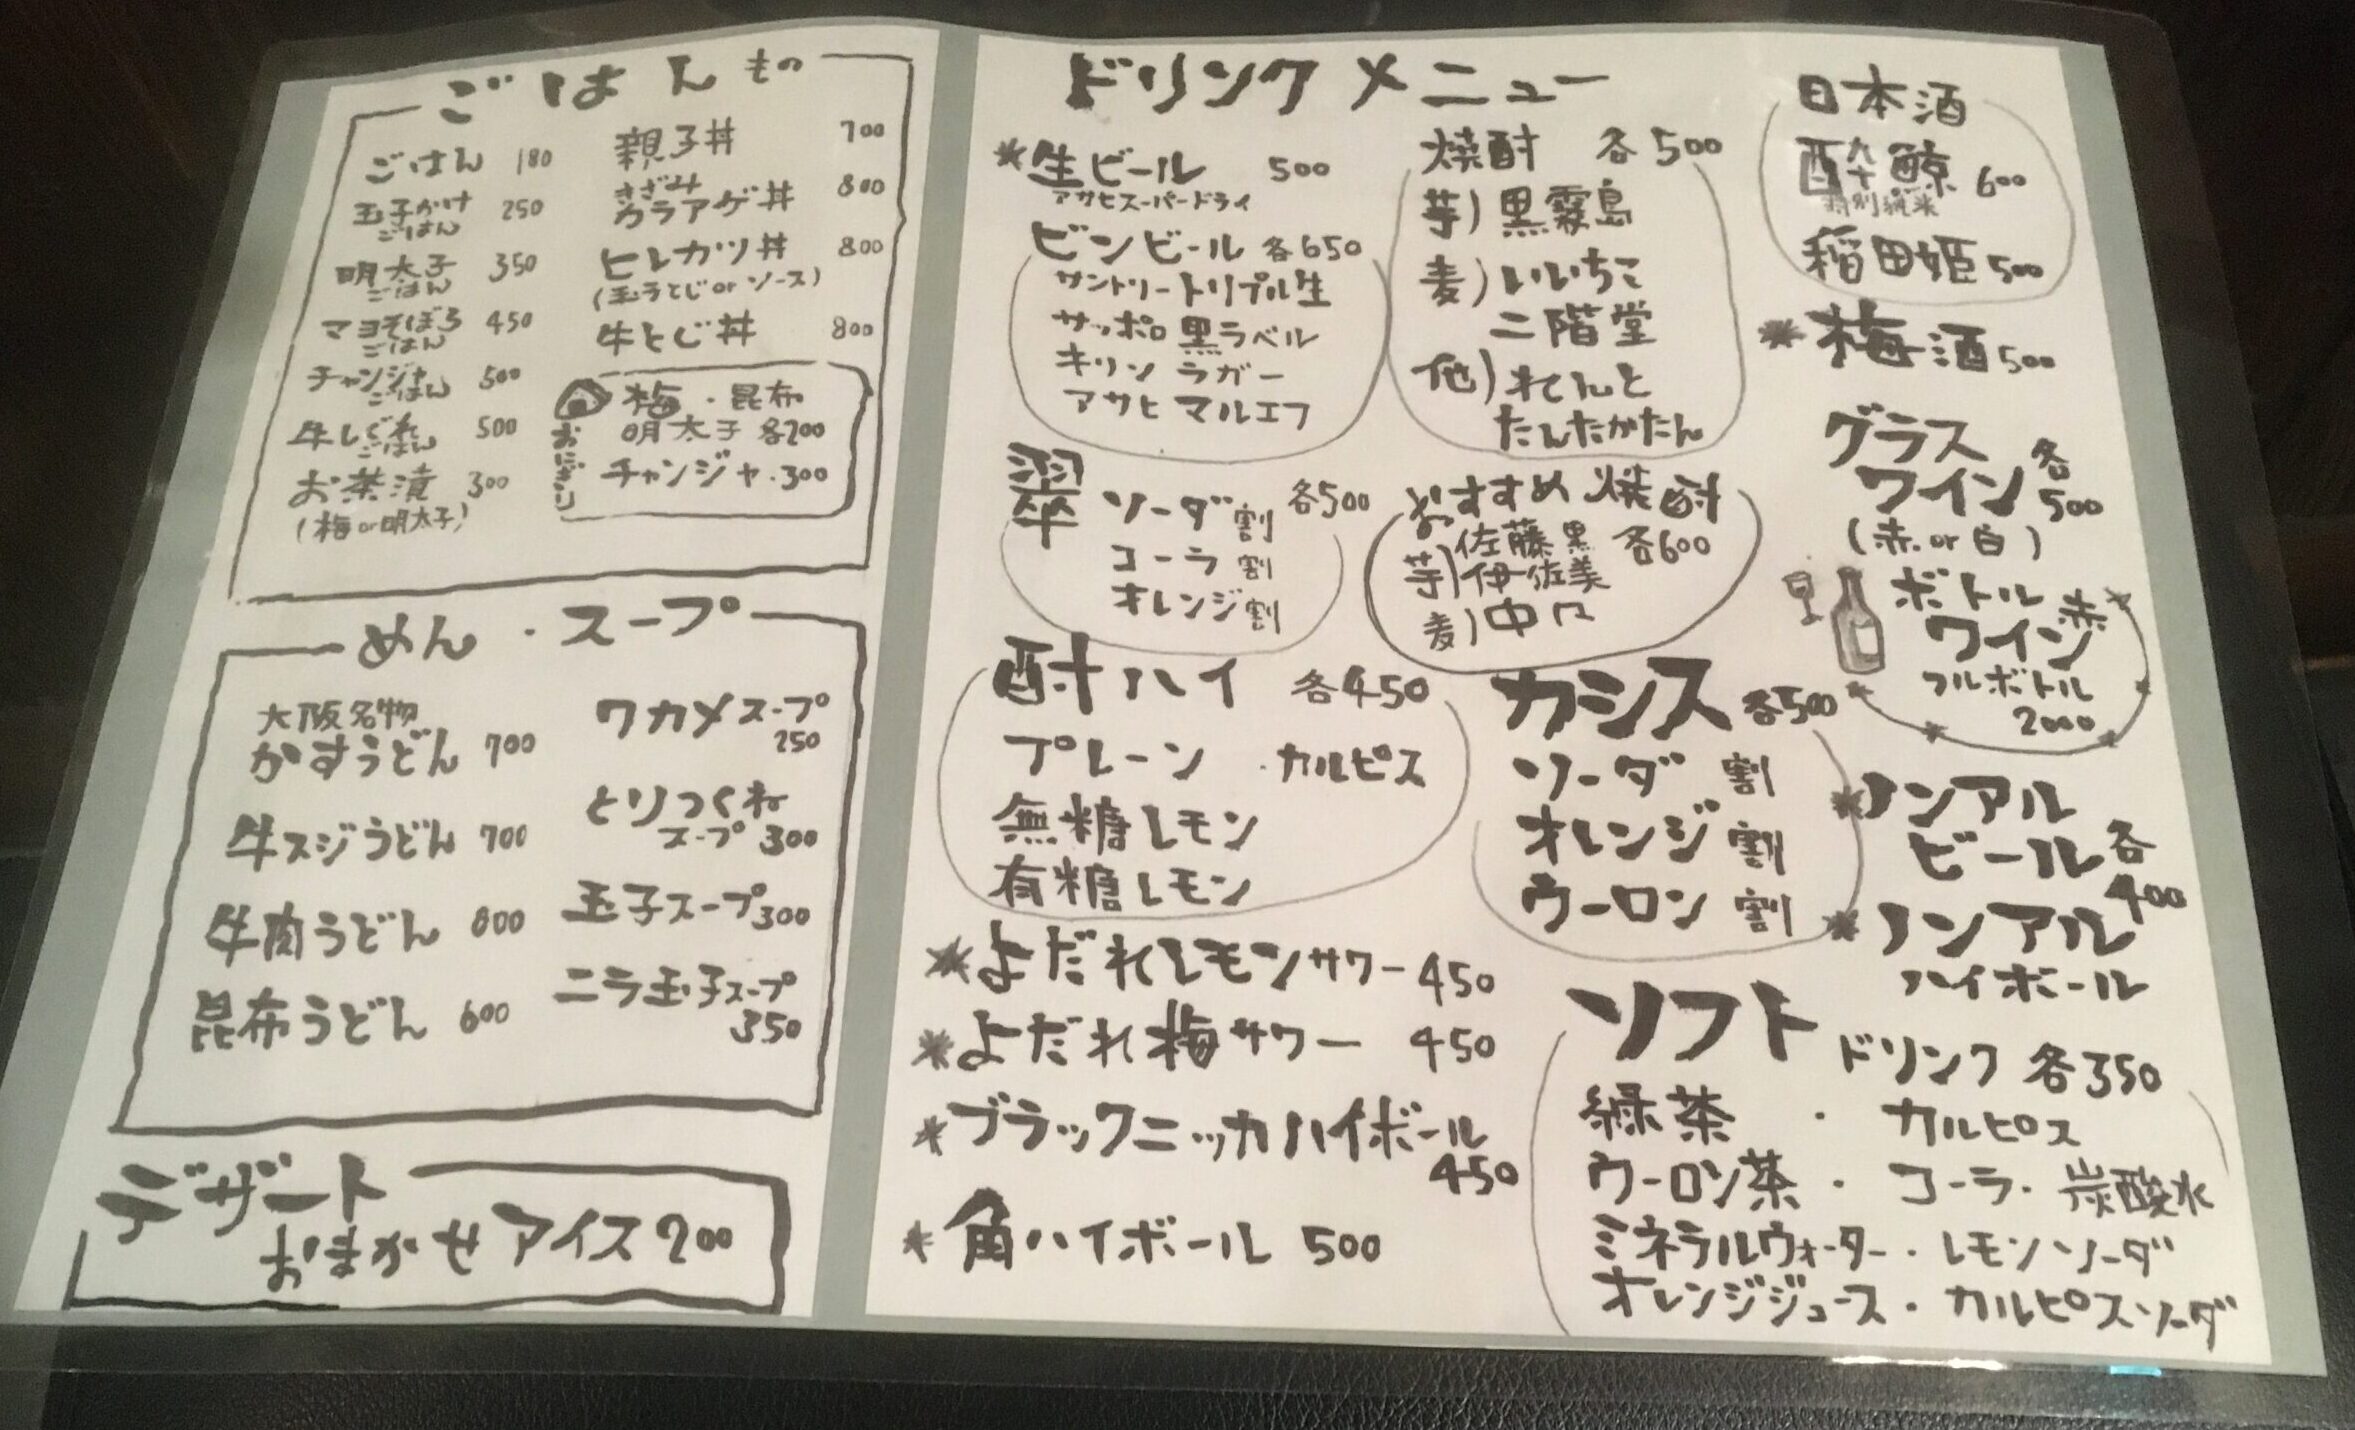 ごはんもの
ごはん 180
玉子かけごはん 250
明太子ごはん 350
マヨそぼろごはん 450
チャンジャごはん 500
牛しぐれごはん 500
お茶漬 300
(梅or明太子)
親子丼 700
きざみカラアゲ丼 800
ヒレカツ丼 800
(玉子とじorソース)
牛とじ丼 800
おにぎり
梅・昆布
明太子 各200
チャンジャ・300
めん・スープ
大阪名物
かすうどん 700
牛スジうどん 700
牛肉うどん 800
昆布うどん 600
ワカメスープ
250
とりつくね
スープ 300
玉子スープ300
ニラ玉子スープ
350
デザート
おまかせアイス200
ドリンクメニュー
*生ビール 500
アサヒスーパードライ
ビンビール 各650
サントリートリプル生
サッポロ黒ラベル
キリン ラガー
アサヒ マルエフ
翠 ソーダ割 各500
コーラ割
オレンジ割
酎ハイ 各450
プレーン ・カルピス
無糖レモン
有糖レモン
*よだれレモンサワー 450
*よだれ梅サワー 450
*ブラックニッカハイボール
450
*角ハイボール 500
焼酎 各500
芋)黒霧島
麦)いいちこ
二階堂
他)れんと
たんたかたん
おすすめ焼酎
各600
芋)佐藤黒
伊佐美
麦)中々
カシス 各500
ソーダ割
オレンジ割
ウーロン割
日本酒
酔鯨 600
特別純米
稲田姫 500
*梅酒 500
グラス
ワイン 各500
(赤.or白)
ボトル
ワイン 赤
フルボトル
2000
*ノンアル
ビール 各
400
*ノンアル
ハイボール
ソフト
ドリンク 各350
緑茶 ・ カルピス
ウーロン茶・コーラ・炭酸水
ミネラルウォーター・レモンソーダ
オレンジジュース・カルピスソーダ